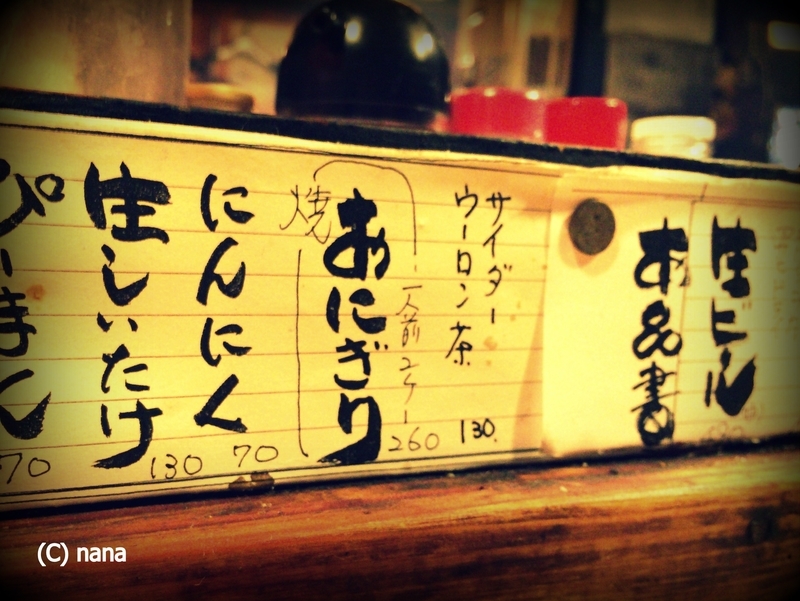 生ビール
お品書
サイダー
ウーロン茶
130
焼おにぎり
一人前2ケ
260
にんにく
70
生しいたけ
130
ぴーまん
70
(C) nana